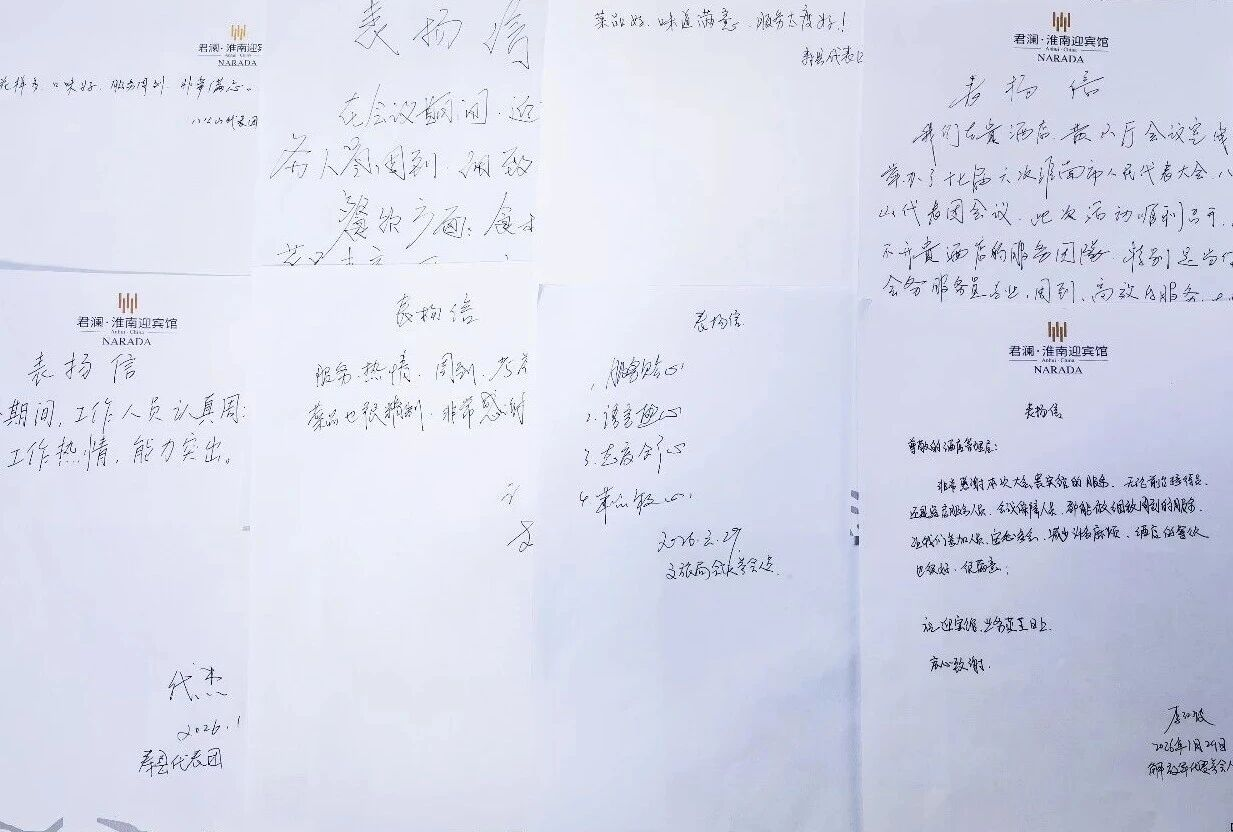 君澜·淮南迎宾馆
Anhui·China
NARADA
花样多、口味好、服务周到、非常满意。
八公山代表团
表扬信
在会议期间、
周到、细致
餐饮方面：食
菜品好、味道满意、服务态度好！
寿县代表
君澜·淮南迎宾馆
Anhui·China
NARADA
表扬信
我们在贵酒店、黄山厅会议室
举办了十七届六次淮南市人民代表大会、八
山代表团会议、此次活动顺利召开、
不开贵酒店的服务团队、特别是
会务服务员专业、周到、高效的服务
君澜·淮南迎宾馆
Anhui·China
NARADA
表扬信
期间，工作人员认真周
工作热情，能力突出。
代杰
2026.1
寿县代表团
表扬信
服务热情、周到、
菜品也很精致、非常感谢
表扬信
1、服务贴心
2、语言
3、态度
4、
2026.2.29
文旅局
君澜·淮南迎宾馆
Anhui·China
NARADA
表扬信
尊敬的酒店管理层：
非常感谢本次大会贵宾馆的服务、无论前台接待员、
还是客房服务人员、会议保障人员、都能做细致周到的服务、
让我们参加人员、安心参会、减少许多麻烦、酒店的餐饮
也很好、很满意；
祝迎宾馆、业务蒸蒸日上
衷心致谢
2026年1月29日